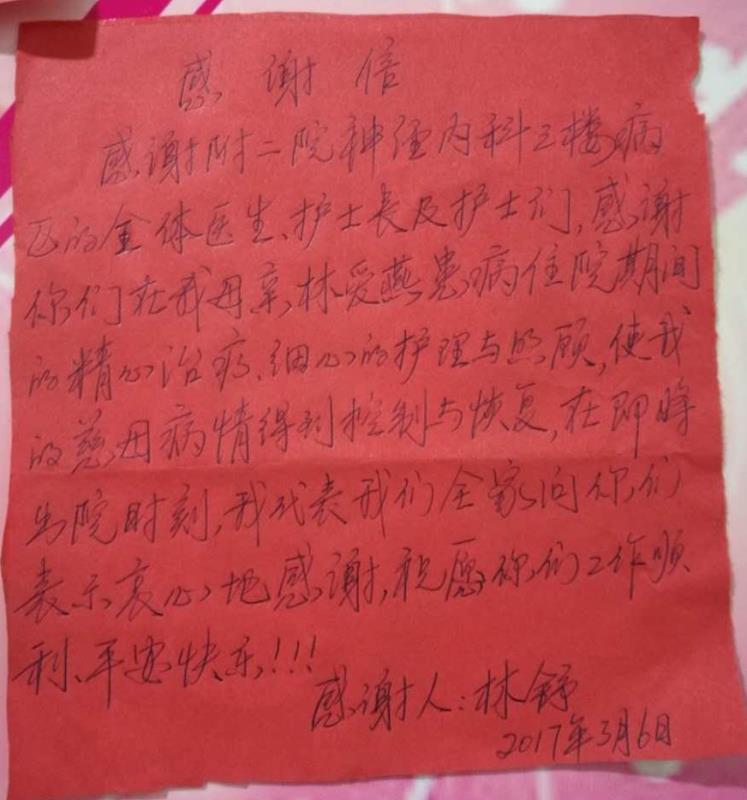 感谢信
感谢附二院神经内科三楼病
区的全体医生、护士长及护士们,感谢
你们在我母亲林爱燕患病住院期间
的精心治疗、细心的护理与照顾,使我
的慈母病情得到控制与恢复,在即将
出院时刻,我代表我们全家向你们
表示衷心地感谢,祝愿你们工作顺
利、平安快乐!!!
感谢人:林舒
2017年3月6日